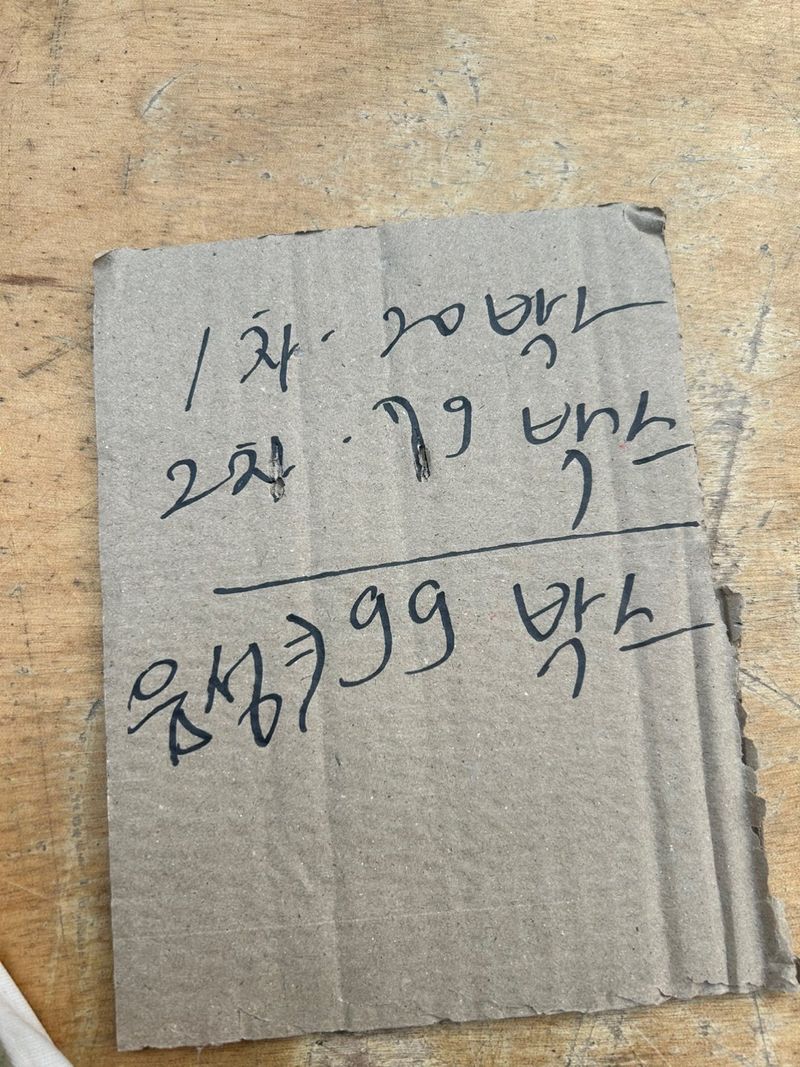 1차. 20박스
2차. 79 박스
음성 99 박스